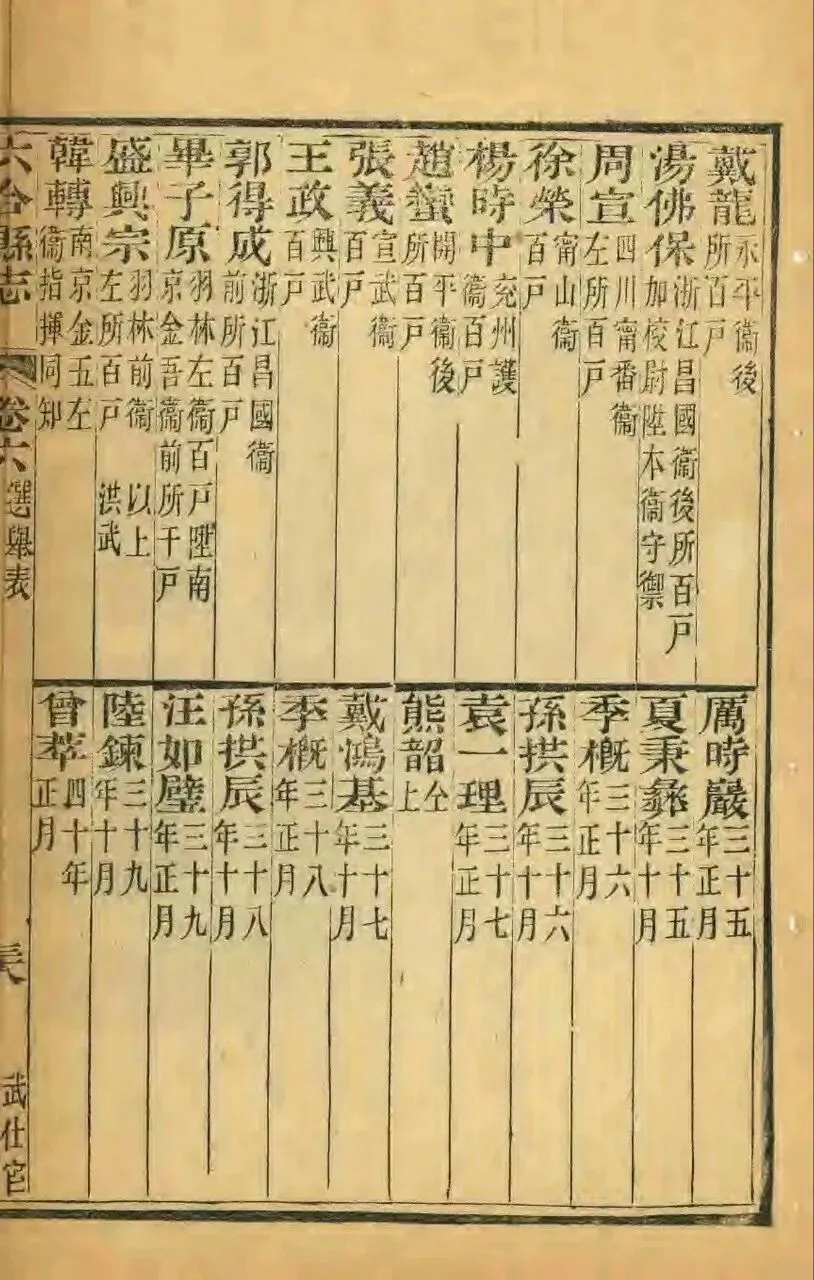 戴龍 永平衞後所百戸
湯佛保 浙江昌國衞後所百戸加校尉陞本衞守禦
周宣 四川甯番衞左所百戸
徐榮 甯山衞百戸
楊時中 兗州護衞百戸
趙蠻 開平衞後所百戸
張義 宣武衞百戸
王政 興武衞百戸
郭得成 浙江昌國衞前所百戸
畢子原 羽林左衞百戸陞南京金吾衞前所千戸
盛興宗 羽林前衞左所百戸 以上洪武
韓轉 南京金五左衞指揮同知
厲時巖 三十五年正月
夏秉彝 三十五年十月
季概 三十六年正月
孫拱辰 三十六年十月
袁一理 三十七年正月
熊韶 仝上
戴鴻基 三十七年十月
季概 三十八年正月
孫拱辰 三十八年十月
汪如璧 三十九年正月
陸鍊 三十九年十月
曾萃 四十年正月
六合縣志 卷六 選舉表 武仕官